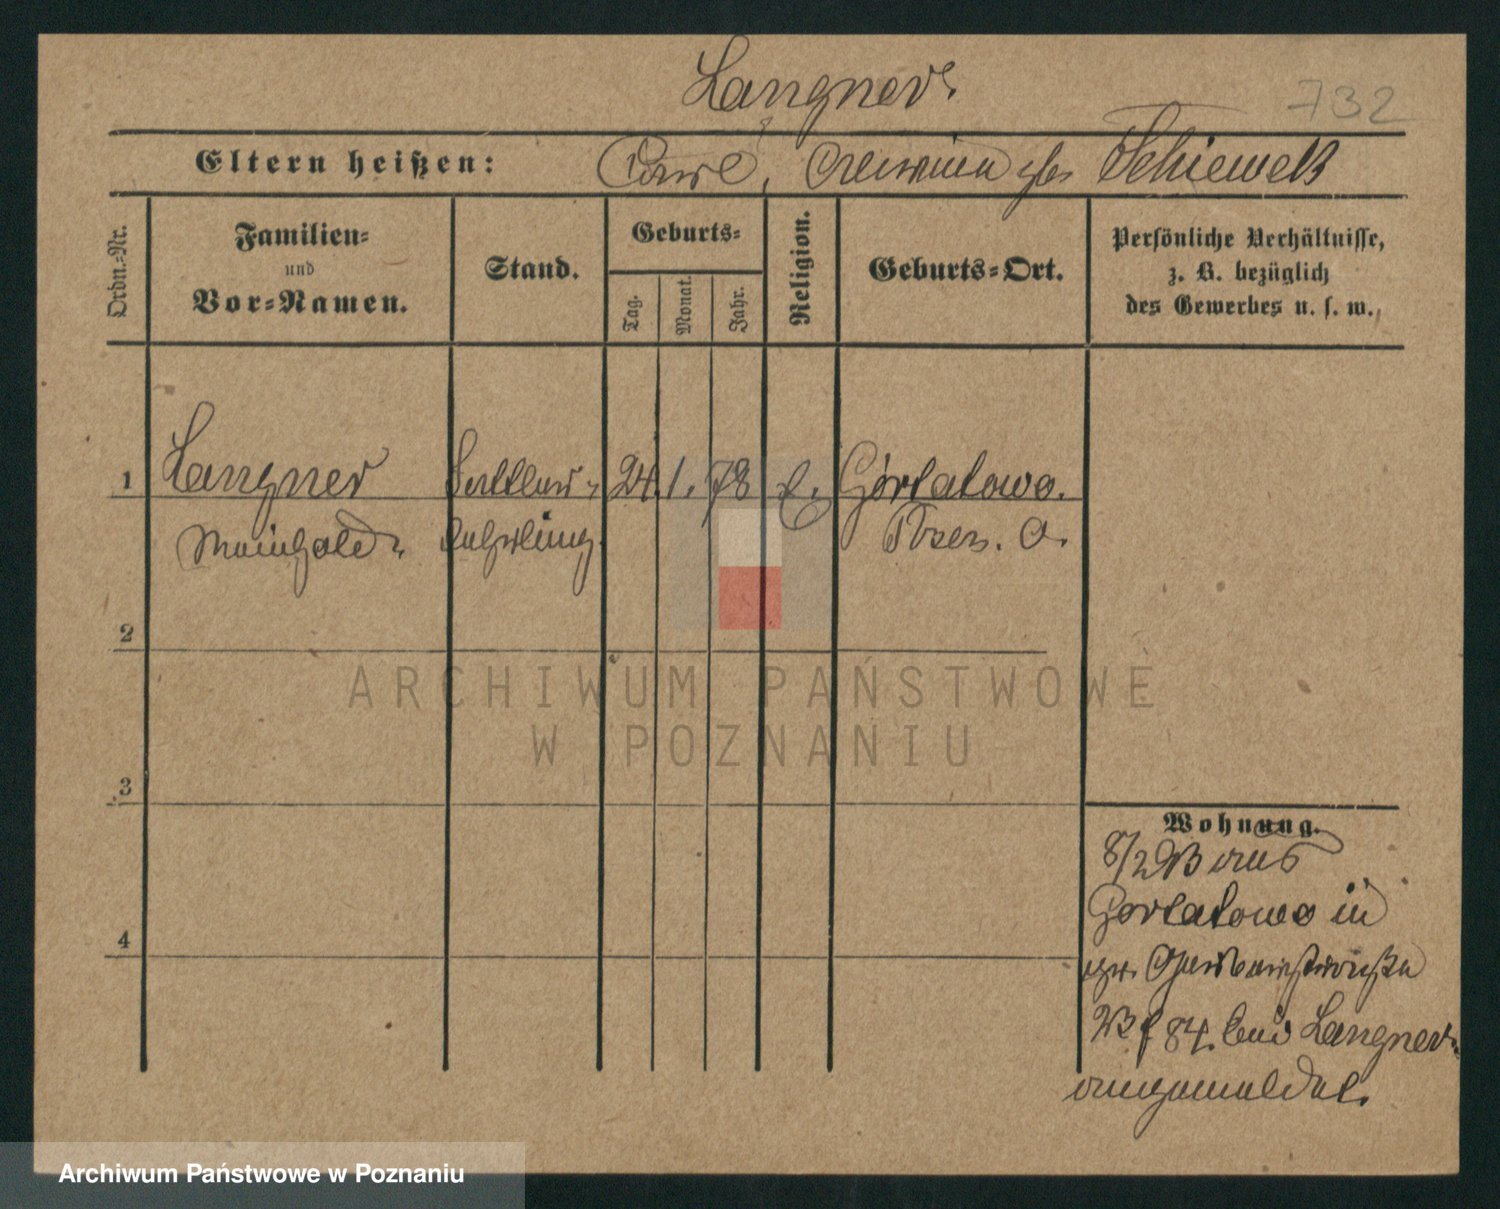 Langner.
732
Eltern heißen: Carl, geb. Schieweck
Ordn.-Nr.
Familien-
und
Vor-Namen.
Stand.
Geburts-
Tag.
Monat.
Jahr.
Religion.
Geburts-Ort.
Persönliche Verhältnisse,
z. B. bezüglich
des Gewerbes u. s. w.
1 Langner Sattler- 24. 1. 78 Gortatowo.
Meinhold Lehrling. Posen. O.
2
3
4
Wohnung.
8/2 93 aus
Gortatowo in
gr. Gerberstraße
84. bei Langner
angemeldet.
ARCHIWUM PAŃSTWOWE
W POZNANIU
Archiwum Państwowe w Poznaniu